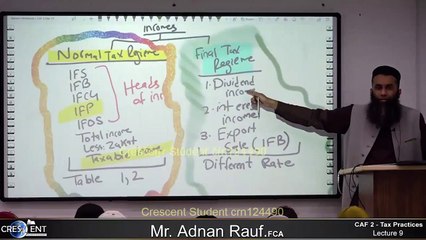 incomes
Normal Tax Regime
IFS
IFB
IFCG
IFP
IFOS
Heads of inc
Total income
Less: Zakat
Taxable income
Table 1, 2
Final Tax
Regime
1. Dividend
income
2. interest
income
3. Export
Sale (IFB)
Different Rate
Student crn124490
Crescent Student crn124490
CRESCENT
Mr. Adnan Rauf,FCA
CAF 2 - Tax Practices
Lecture 9